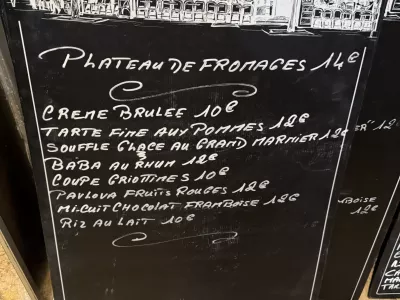 PLATEAU DE FROMAGES 14€
CREME BRULEE 10€
TARTE FINE AUX POMMES 12€
SOUFFLE GLACE AU GRAND MARNIER 12€
BABA AU RHUM 12€
COUPE GRIOTTINES 10€
PAVLOVA FRUITS ROUGES 12€
MI-CUIT CHOCOLAT FRAMBOISE 12€
RIZ AU LAIT 10€
12
BOISE
12€